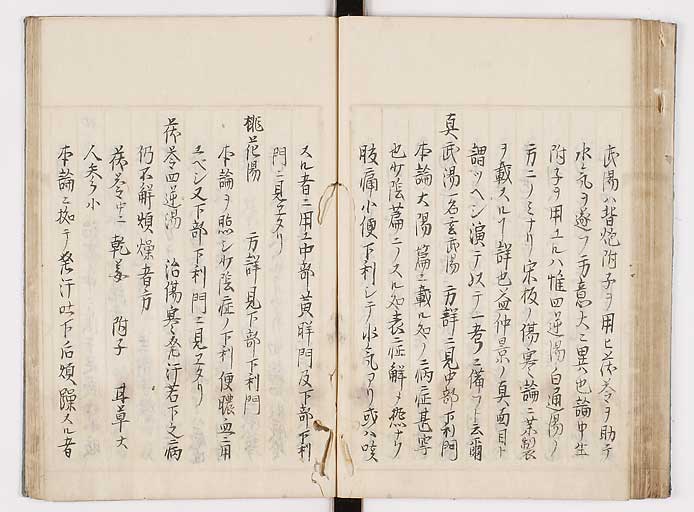 武湯ハ皆炮附子ヲ用ヒ茯苓ヲ助テ
水気ヲ逐フ方意大ニ異也論中生
附子ヲ用ユルハ惟四逆湯白通湯ノ
方ニノミナリ宋板ノ傷寒論ニ製
ヲ載スル詳也益仲景ノ真面目ト
謂ツベシ演テ以テ一考ニ備フト云爾
真武湯一名玄武湯 方詳ニ見中部下利門
本論大陽篇ニ載ル処ノ病症甚寧
也少陰篇ニノスル処表症解シ熱ナク
腹痛小便下利シテ水気アリ或ハ咳
スル者ニ用ユ中部黄胖門及下部下利
門ニ見ユタリ
桃花湯 方詳見下部下利門
本論ヲ照シ少陰症ノ下利便膿血ニ用
ユベシ又下部下利門ニ見ユタリ
茯苓四逆湯 治傷寒発汗若下之病
仍不解煩燥者方
茯苓中 乾姜 附子 甘草大
人参小
本論ニ拠テ発汗吐下后煩躁スル者